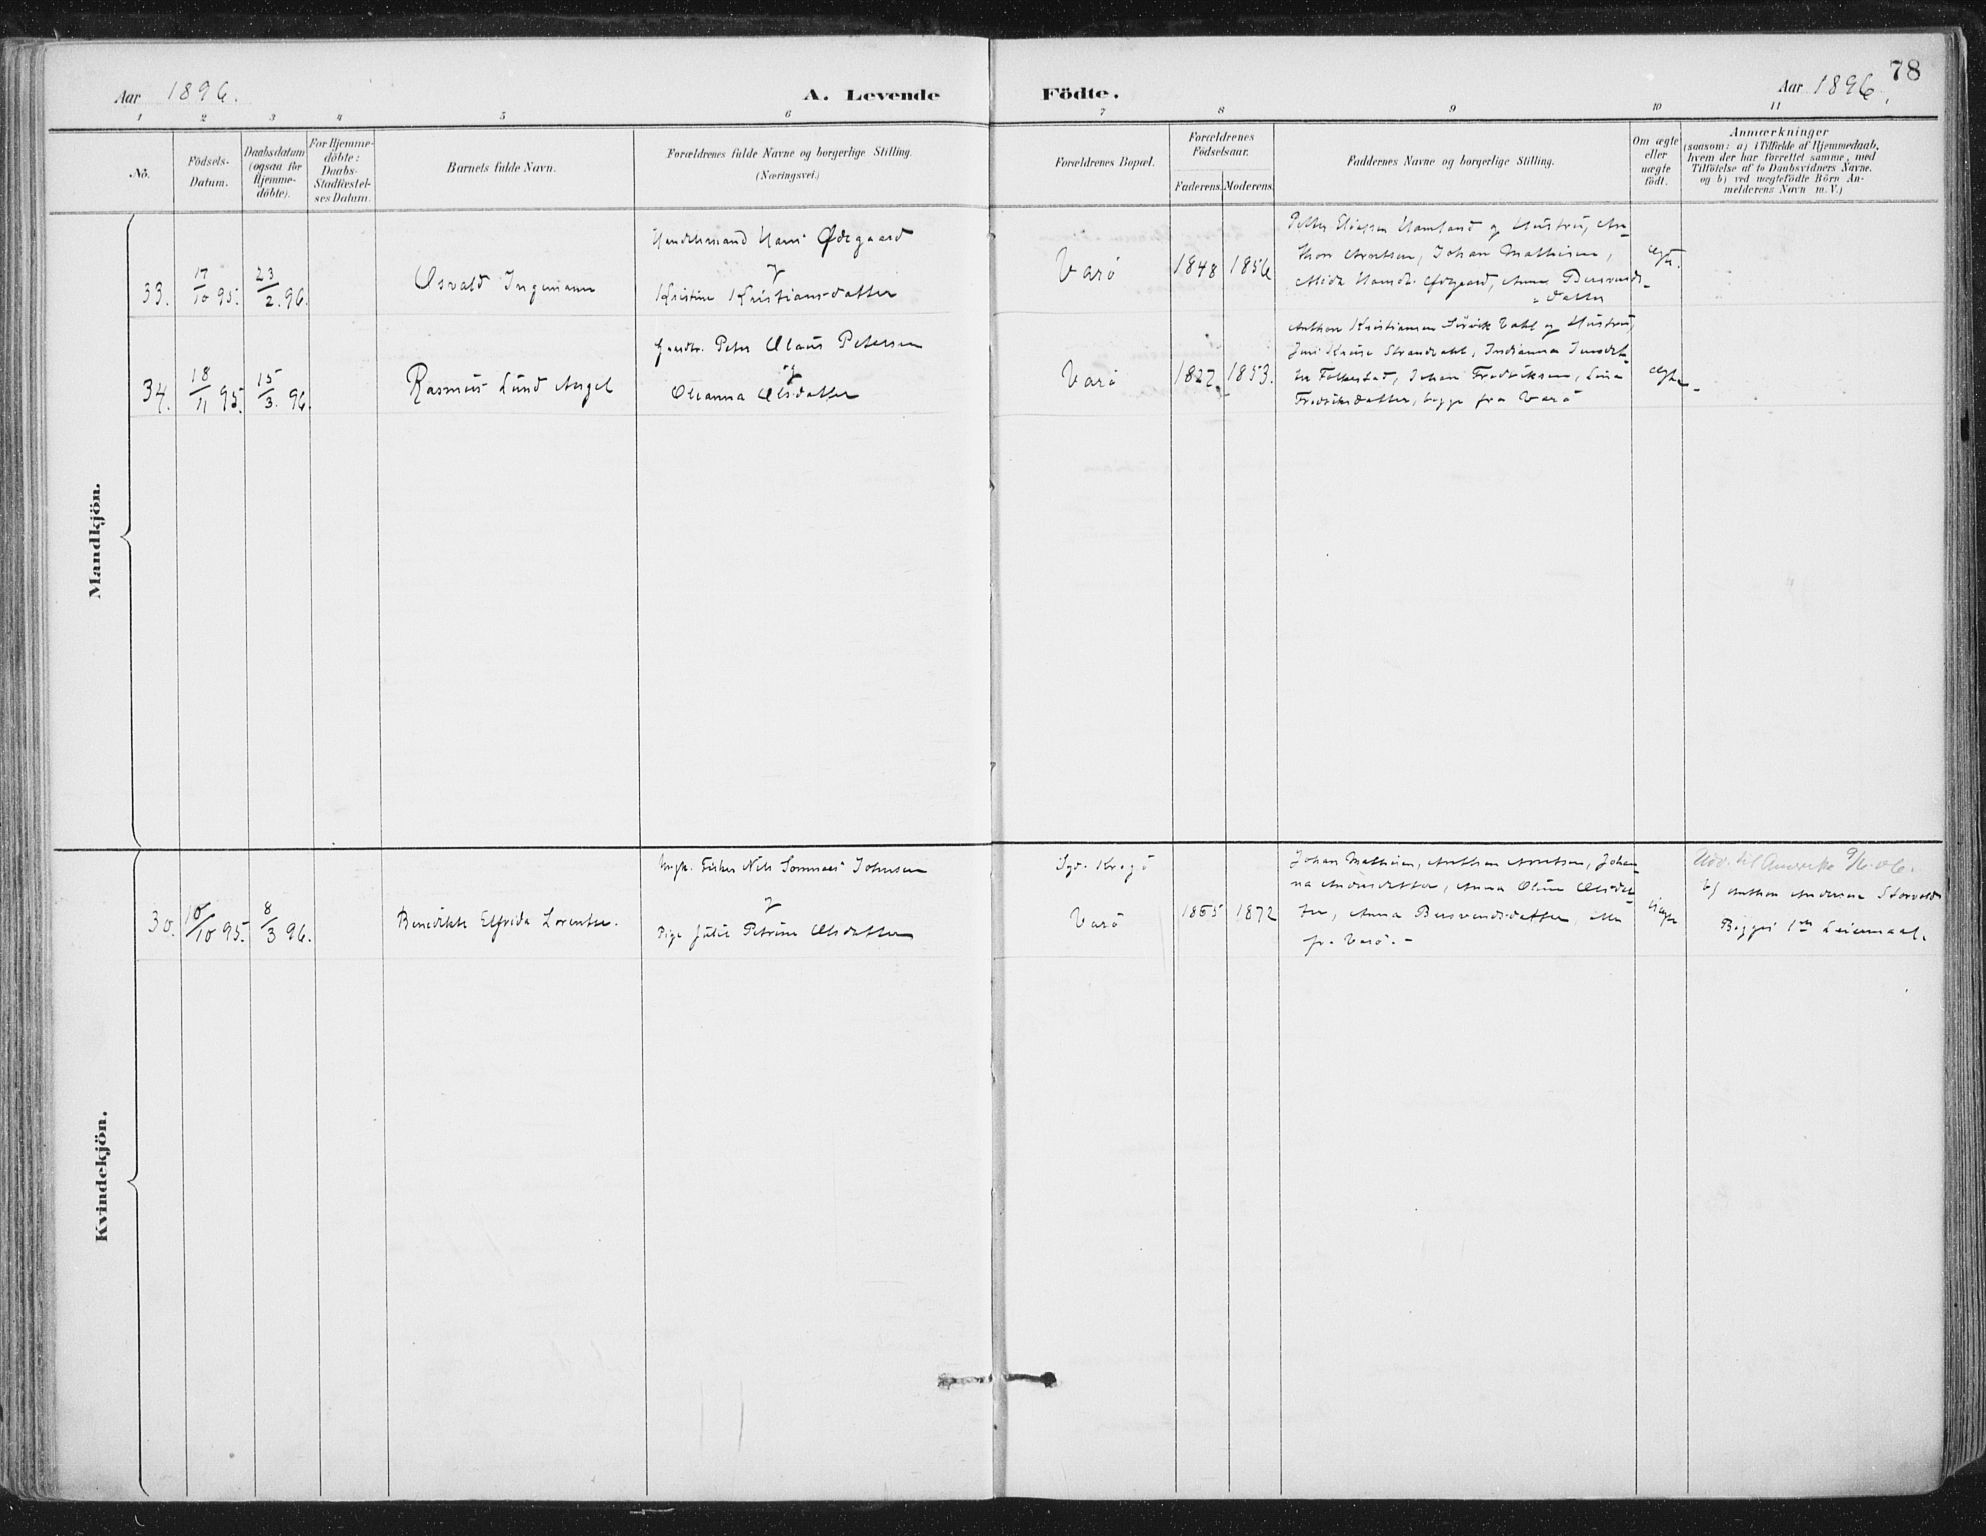 78
Aar 1896.
A. Levende Födte.
Aar 1896.
1 2 3 4 5 6 7 8 9 10 11
No.
Födsels-
Datum.
Daabsdatum
(ogsaa for
Hjemme-
döbte).
For Hjemme-
döbte:
Daabs-
Stadfæstel-
ses Datum.
Barnets fulde Navn.
Forældrenes fulde Navne og borgerlige Stilling.
(Næringsvei.)
Forældrenes Bopæl.
Forældrenes
Födselsaar.
Faderens. Moderens.
Faddernes Navne og borgerlige Stilling.
Om ægte
eller
uægte
födt.
Anmærkninger
(saasom: a) i Tilfælde af Hjemmedaab,
hvem der har forrettet samme, med
Tilföielse af to Daabsvidners Navne.
og b) ved uægtefödte Börn An-
melderens Navn m. V.)
Mandkjön.
33.
17/10 95.
23/2. 96.
Osvald Ingemann
Handelsmand Hans Ødegaard
og
Kristine Kristiansdatter
Værö
1848
1856
Petter Eliassen Hamland og Hustru, An-
thon Arntsen, Johan Mathisen,
Alida Hansd. Ødegaard, Anna Bersvends-
datter
ægte.
34.
18/11 95.
15/3. 96.
Rasmus Lund Angel
Gaardbr. Peter Olaus Petersen
og
Oleanna Olsdatter
Værö
1827.
1853.
Anthon Kristiansen Sörvik Vahl og Hustru,
Strandvahl, Indianna Jensdat-
ter Johan Fredriksen, Lina
Fredriksdatter, begge fra Værö
ægte
Kvindekjön.
30.
10/10 95.
8/3 96.
Benedikte Elfrida Lorentse.
Ungk. Fisker Nils Johnsen
og
Pige Julie Petrine Olsdatter
Værö
1865
1872
Johan Mathisen, Anthon Arntsen, Johan-
na Andersdatter, Anna Oline Olsdat-
ter, Anna Bersvendsdatter, Alle
fr. Værö.-
Uægte
Udv. til Amerika 9/6.06.
b) Anthon Andersen Storvold
Begges 1ste Leiermaal.